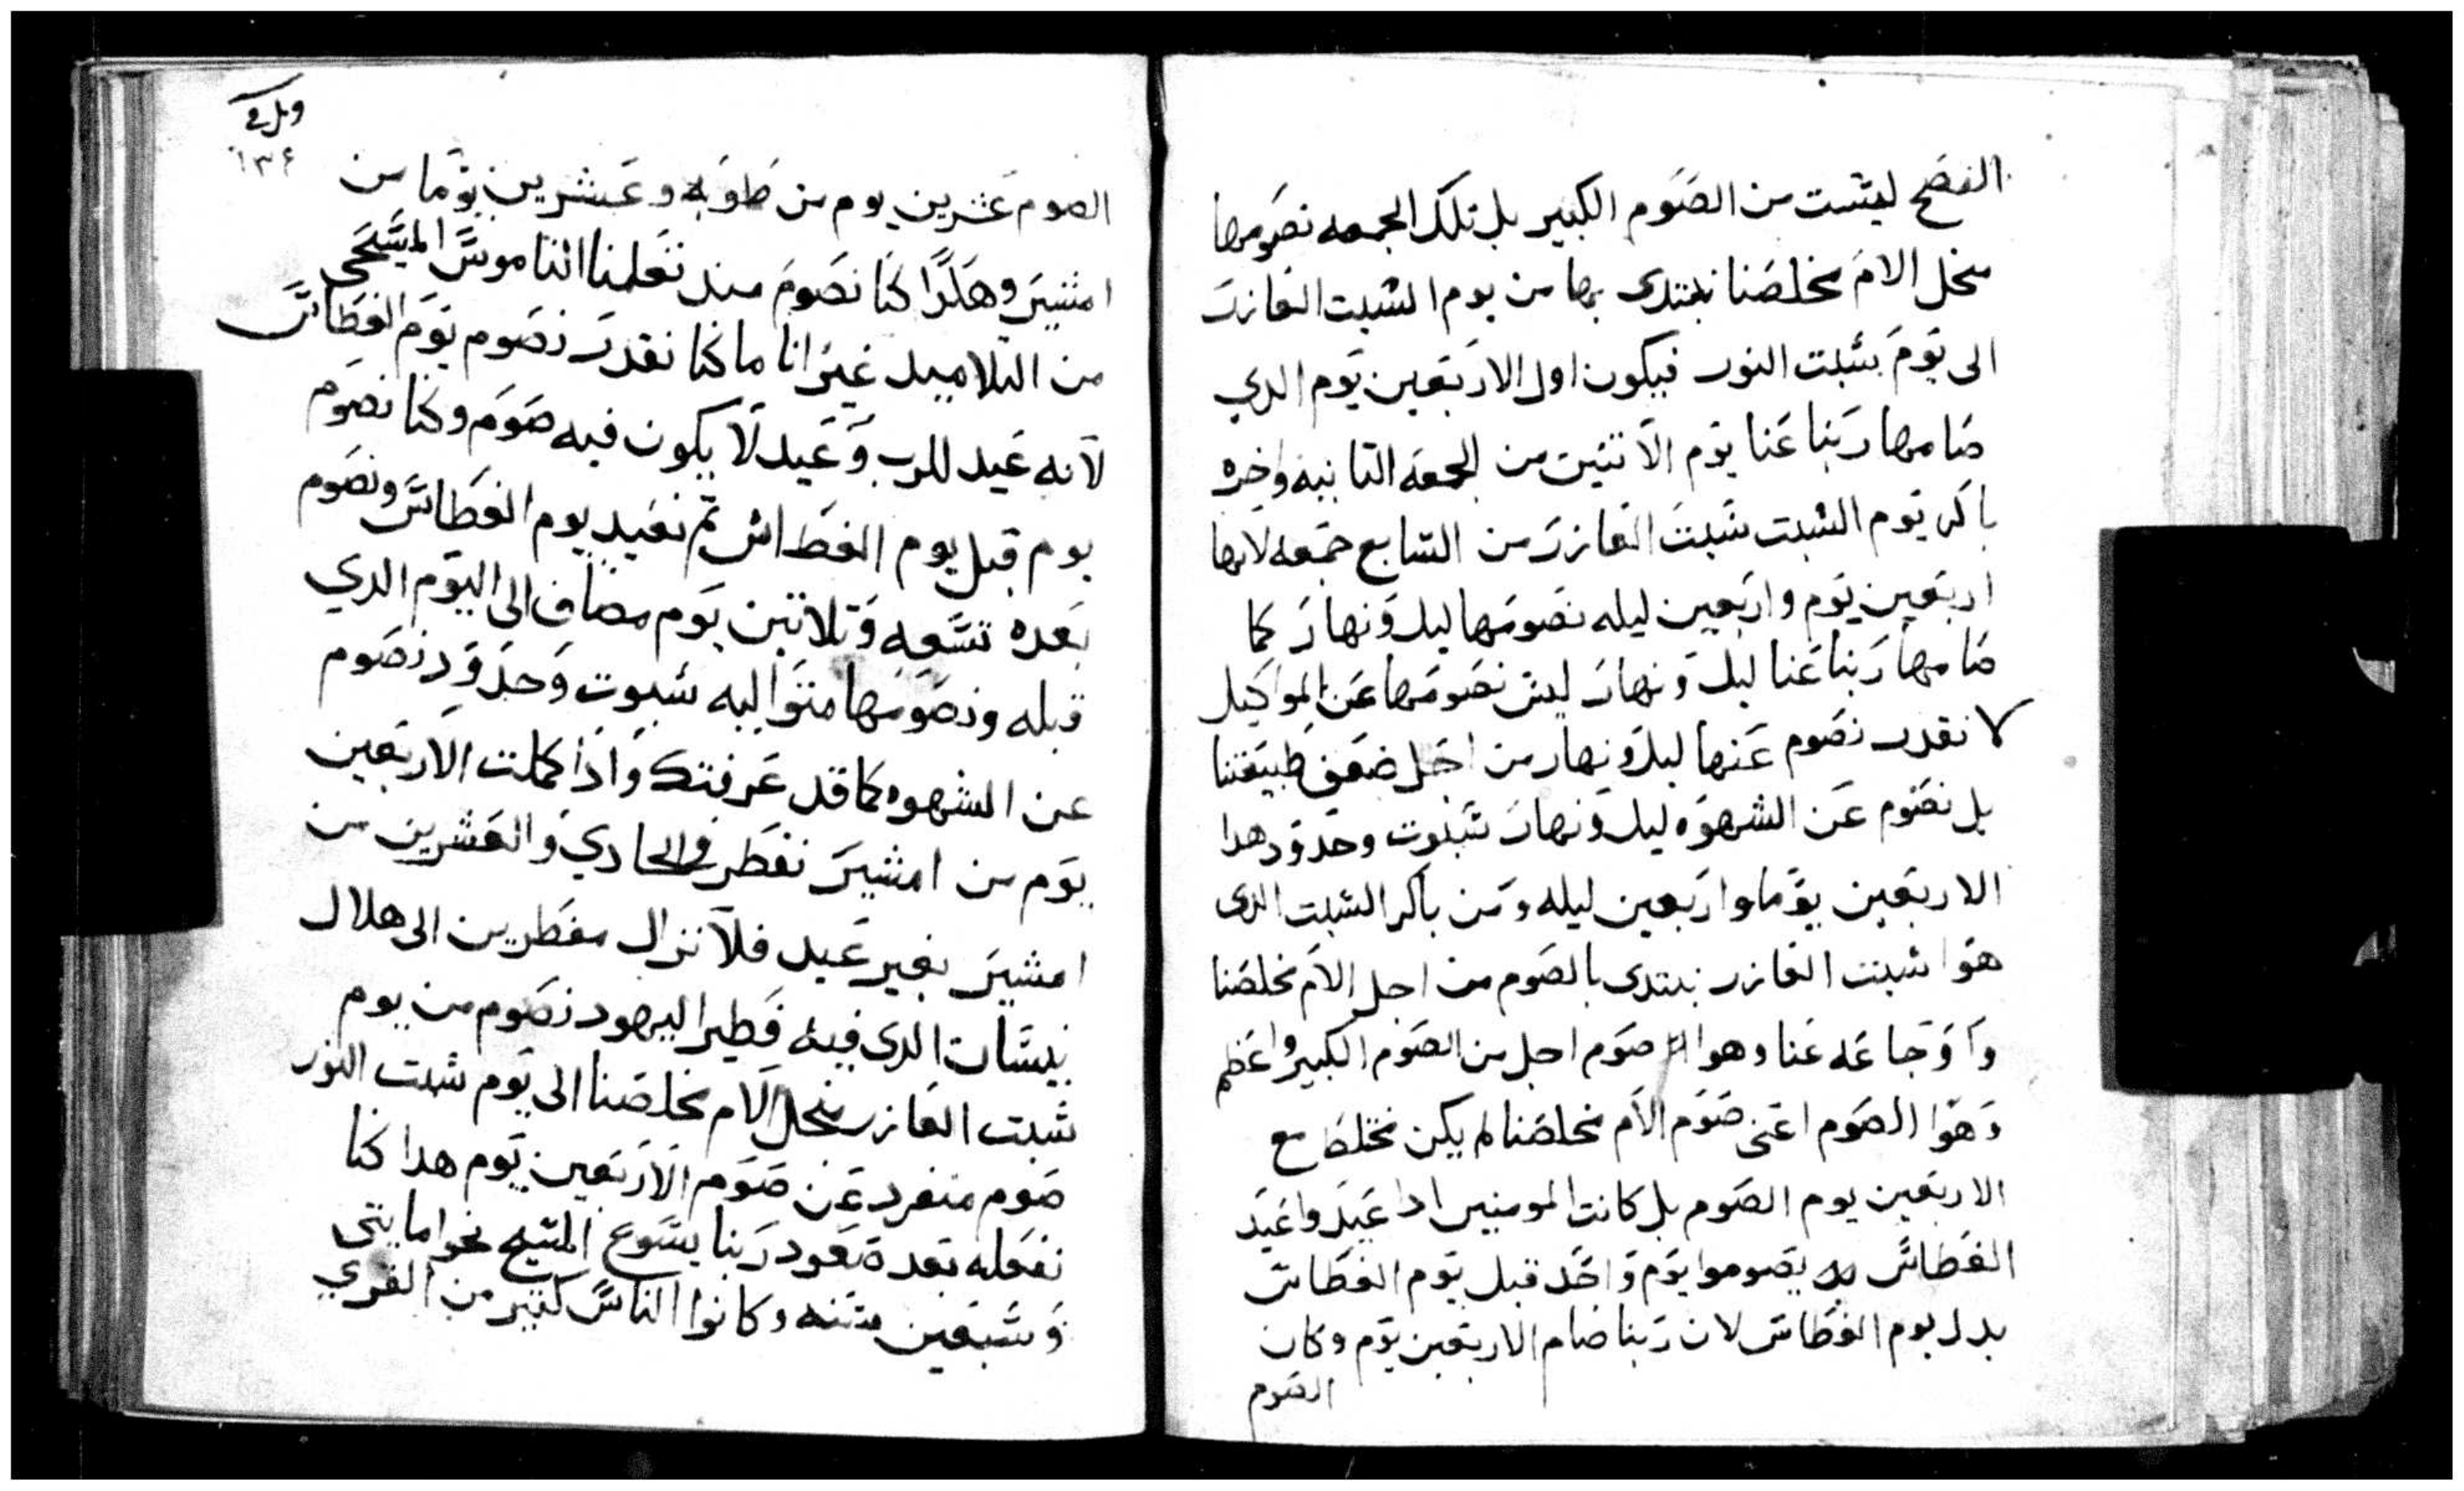 الفصح ليست من الصوم الكبير بل تلك الجمعه نصومها
منجل الام مخلصنا نبتدى بها من يوم السبت العازر
الى يوم سبت النور فيكون اول الاربعين يوم الدي
صامها ربنا عنا يوم الاتنين من الجمعه التانيه واخره
باكر يوم السبت سبت العازر من السابع جمعه لانها
اربعين يوم واربعين ليله نصومها ليل ونهار كما
صامها ربنا عنا ليل ونهار ليس نصومها عن المواكيل
لا نقدر نصوم عنها ليل ونهار من اجل ضعف طبيعتنا
بل نصوم عن الشهوه ليل ونهار سبوت وحدود هدا
الاربعين يوما واربعين ليله ومن باكر السبت الدى
هوا سبت العازر نبتدى بالصوم من اجل الام مخلصنا
واوجاعه عنا وهوا صوم اجل من الصوم الكبير واعظم
وهوا الصوم اعنى صوم الام مخلصنا لم يكن مختلط مع
الاربعين يوم الصوم بل كانت المومنين ادا عيد واعيد
الغطاس يصوموا يوم واحد قبل يوم الغطاس
بدل يوم الغطاس لان ربنا صام الاربعين يوم وكان
الصوم
١٣٤
الصوم عشرين يوم من طوبه وعشرين يوما من
امشير وهكدا كنا نصوم مند تعلمنا الناموس المسيحى
من التلاميد غير انا ما كنا نقدر نصوم يوم الغطاس
لانه عيد للرب وعيد لا يكون فيه صوم وكنا نصوم
يوم قبل يوم الغطاس تم نعيد يوم الغطاس ونصوم
بعده تسعه وتلاتين يوم مضاف الى اليوم الدي
قبله ونصومها متواليه سبوت وحدود نصوم
عن الشهوه كما قد عرفتك وادا كملت الاربعين
يوم من امشير نفطر فى الحادي والعشرين من
امشير بغير عيد فلا نزال مفطرين الى هلال
نيسان الدى فيه فطير اليهود نصوم من يوم
سبت العازر منجل الام مخلصنا الى يوم سبت النور
صوم منفرد عن صوم الاربعين يوم هدا كنا
نفعله بعد صعود ربنا يسوع المسيح نحوا مايتى
وسبعين سنه وكانوا الناس كتير من القري